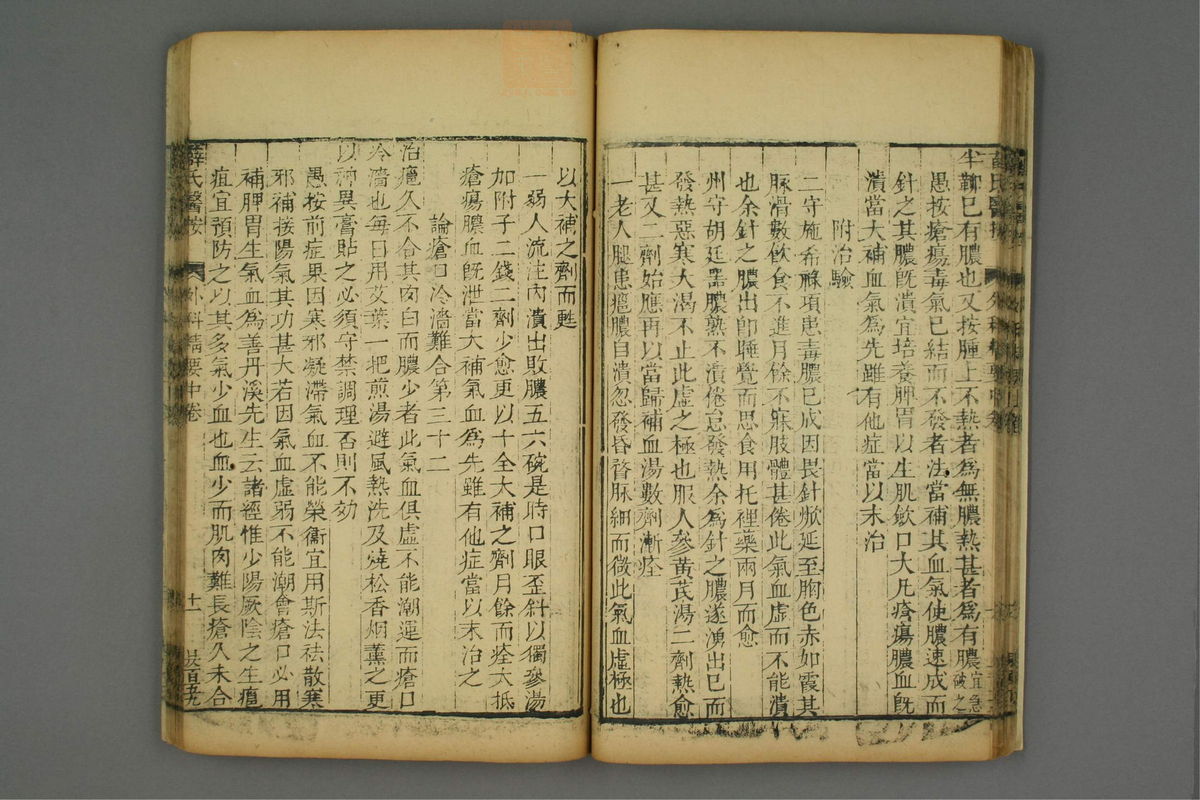 半軟已有膿也又按腫上不熱者爲無膿熱甚者爲有膿宜急破之
愚按瘡瘍毒氣已結而不發者法當補其血氣使膿速成而
針之其膿既潰宜培養脾胃以生肌斂口大凡瘡瘍膿血既
潰當大補血氣爲先雖有他症當以末治
附治驗
二守施希祿項患毒膿已成因畏針焮延至胸色赤如霞其
脉滑數飲食不進月餘不寐肢體甚倦此氣血虛而不能潰
也余針之膿出卽睡覺而思食用托裡藥兩月而愈
州守胡廷器膿熟不潰倦怠發熱余爲針之膿遂湧出已而
發熱惡寒大渴不止此虛之極也服人參黃芪湯二劑熱愈
甚又二劑始應再以當歸補血湯數劑漸痊
一老人腿患癰膿自潰忽發昏瞀脉細而微此氣血虛極也
以大補之劑而甦
一弱人流注內潰出敗膿五六碗是時口眼歪斜以獨參湯
加附子二錢二劑少愈更以十全大補之劑月餘而痊大抵
瘡瘍膿血既泄當大補氣血爲先雖有他症當以末治之
論瘡口冷濇難合第三十二
治癰久不合其肉白而膿少者此氣血俱虛不能潮運而瘡口
冷濇也每日用艾葉一把煎湯避風熱洗及燒松香烟薰之更
以神異膏貼之必須守禁調理否則不効
愚按前症果因寒邪凝滯氣血不能榮衞宜用斯法祛散寒
邪補接陽氣其功甚大若因氣血虛弱不能潮會瘡口必用
補脾胃生氣血爲善丹溪先生云諸經惟少陽厥陰之生癰
疽宜預防之以其多氣少血也血少而肌肉難長瘡久未合
薛氏醫按 外科精要中卷 十一